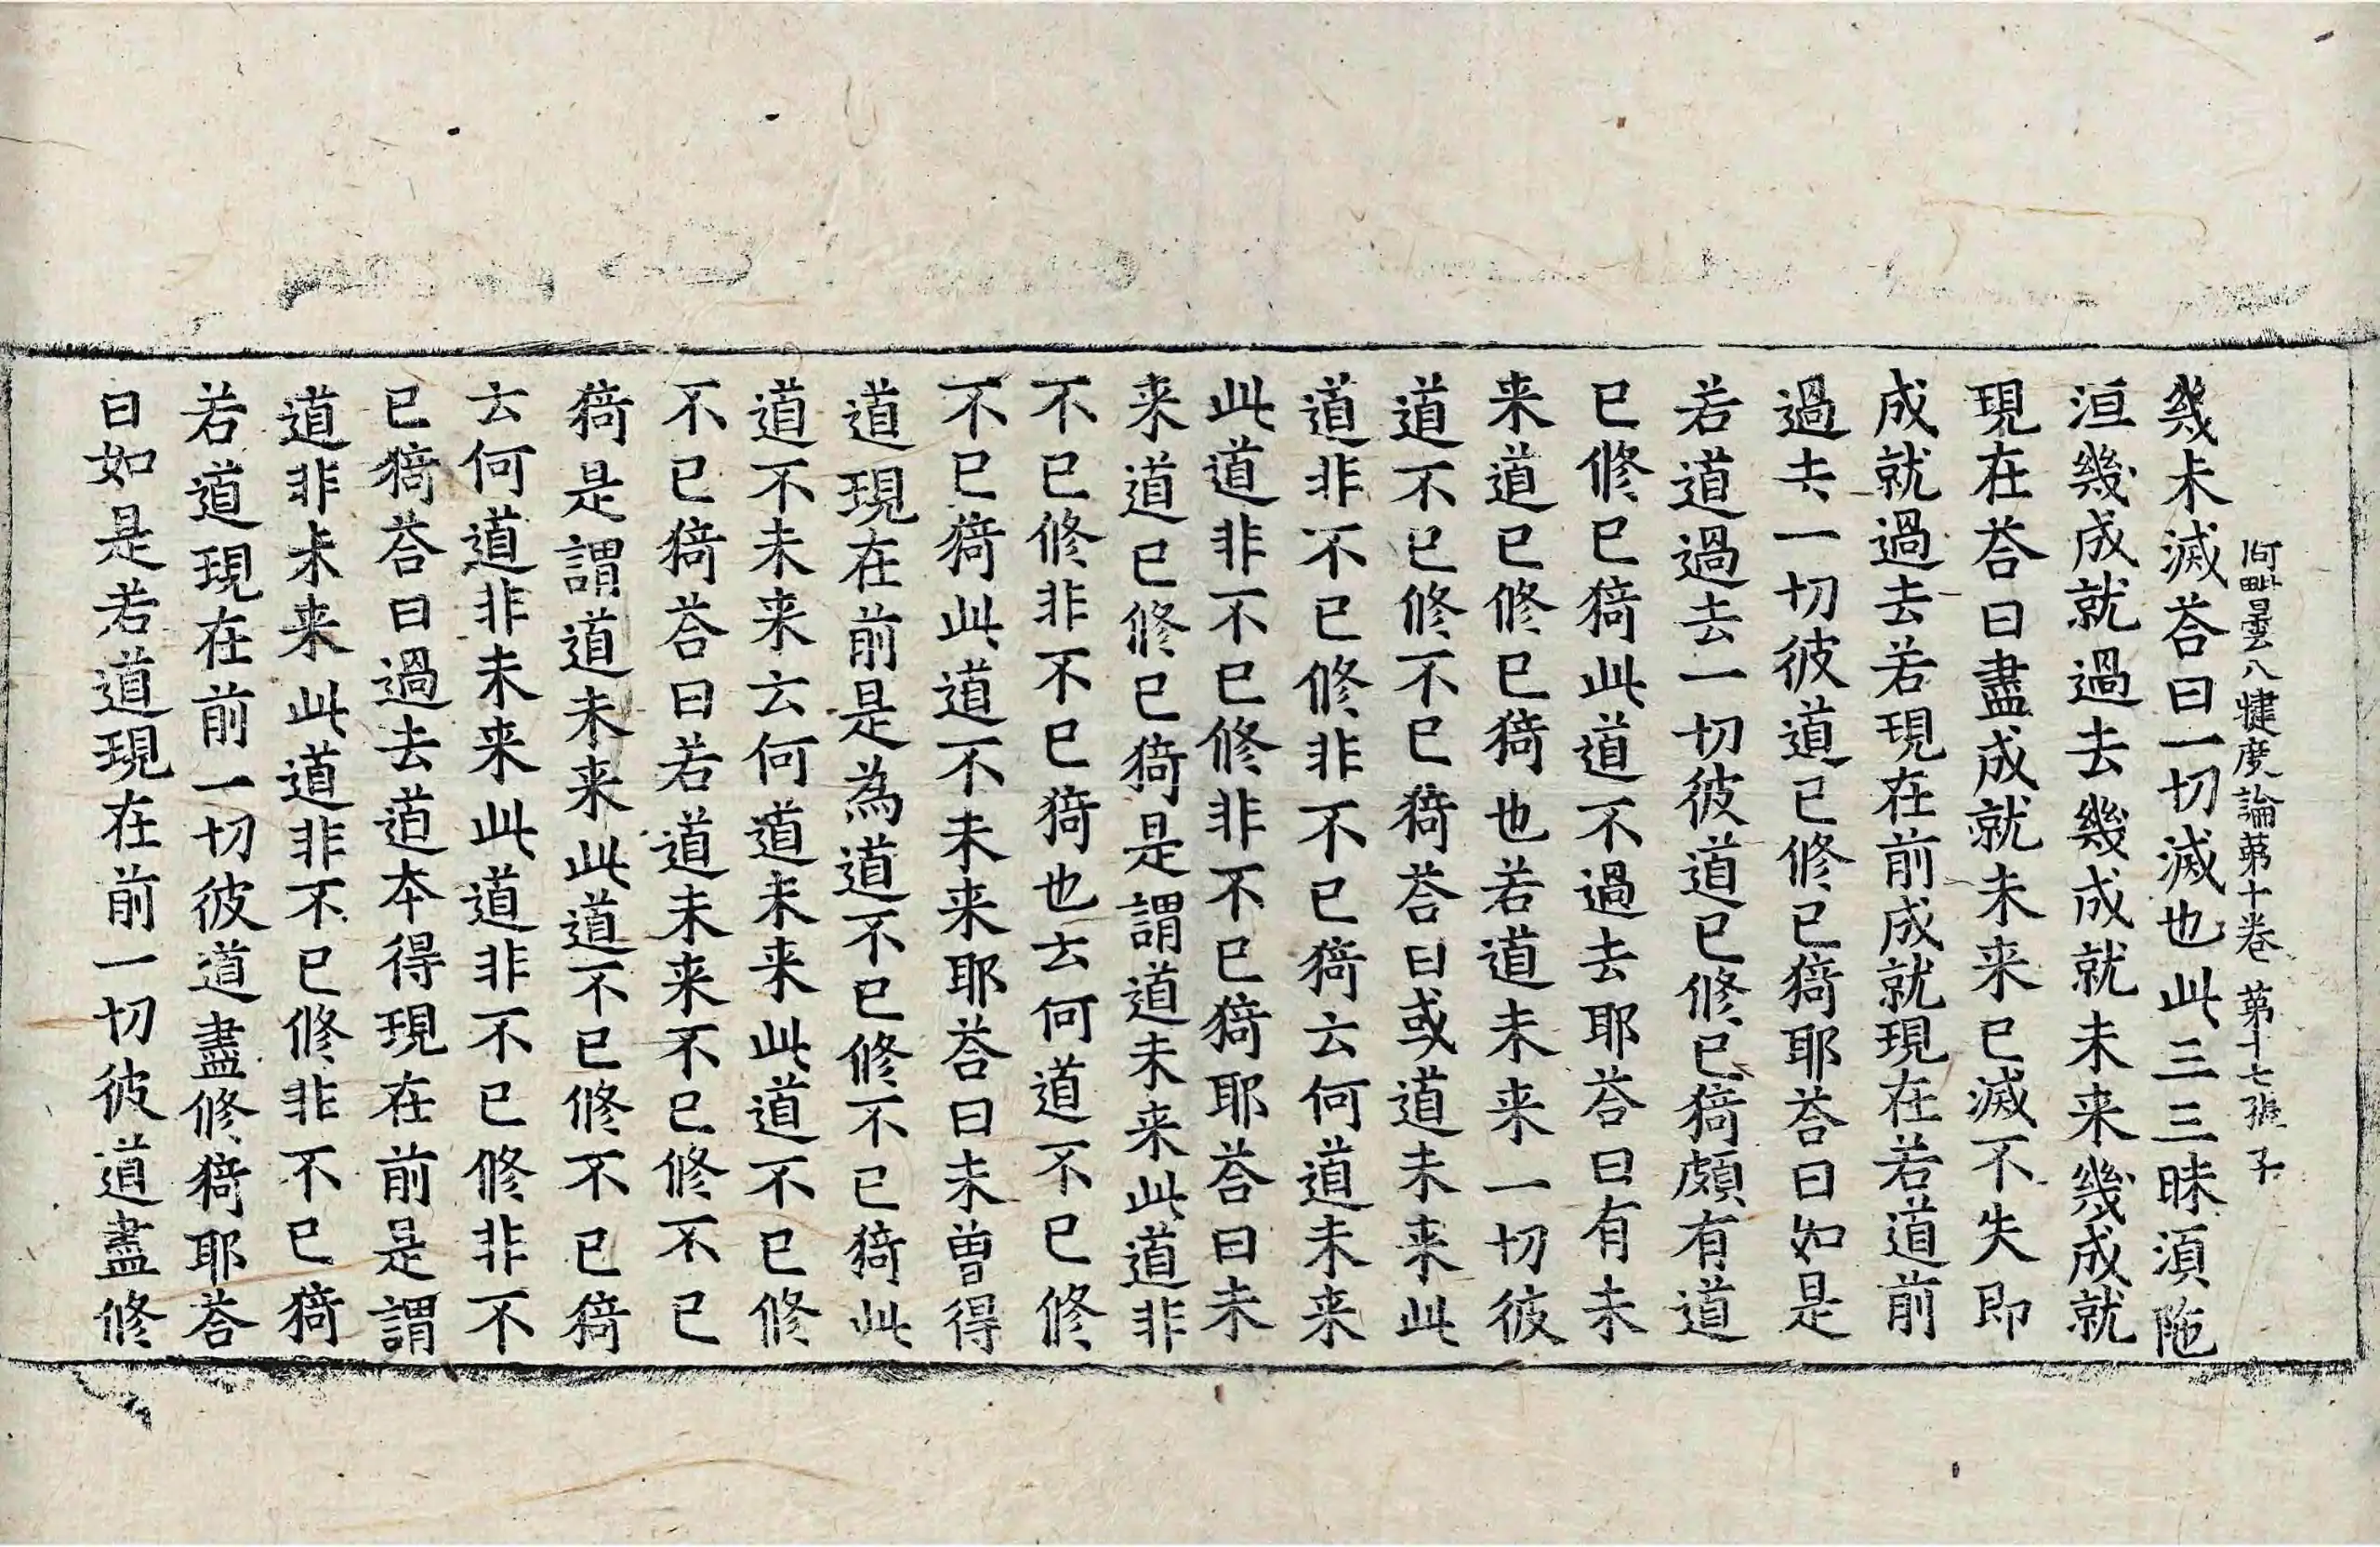 阿毗曇八犍度論第十卷 第十七張 子
幾未滅荅曰一切滅也此三三昧湏陁
洹幾成就過去幾成就未来幾成就
現在荅曰盡成就未来已滅不失即
成就過去若現在前成就現在若道前
過去一切彼道已修已猗耶荅曰如是
若道過去一切彼道已修已猗頗有道
已修已猗此道不過去耶荅曰有未
来道已修已猗也若道未来一切彼
道不已修不已猗荅曰或道未来此
道非不已修非不已猗云何道未来
此道非不已修非不已猗耶荅曰未
来道已修已猗是謂道未来此道非
不已修非不已猗也云何道不已修
不已猗此道不未来耶荅曰未曾得
道現在前是為道不已修不已猗此
道不未来云何道未来此道不已修
不已猗荅曰若道未来不已修不已
猗是謂道未来此道不已修不已猗
云何道非未来此道非不已修非不
已猗荅曰過去道本得現在前是謂
道非未来此道非不已修非不已猗
若道現在前一切彼道盡修猗耶荅
曰如是若道現在前一切彼道盡修